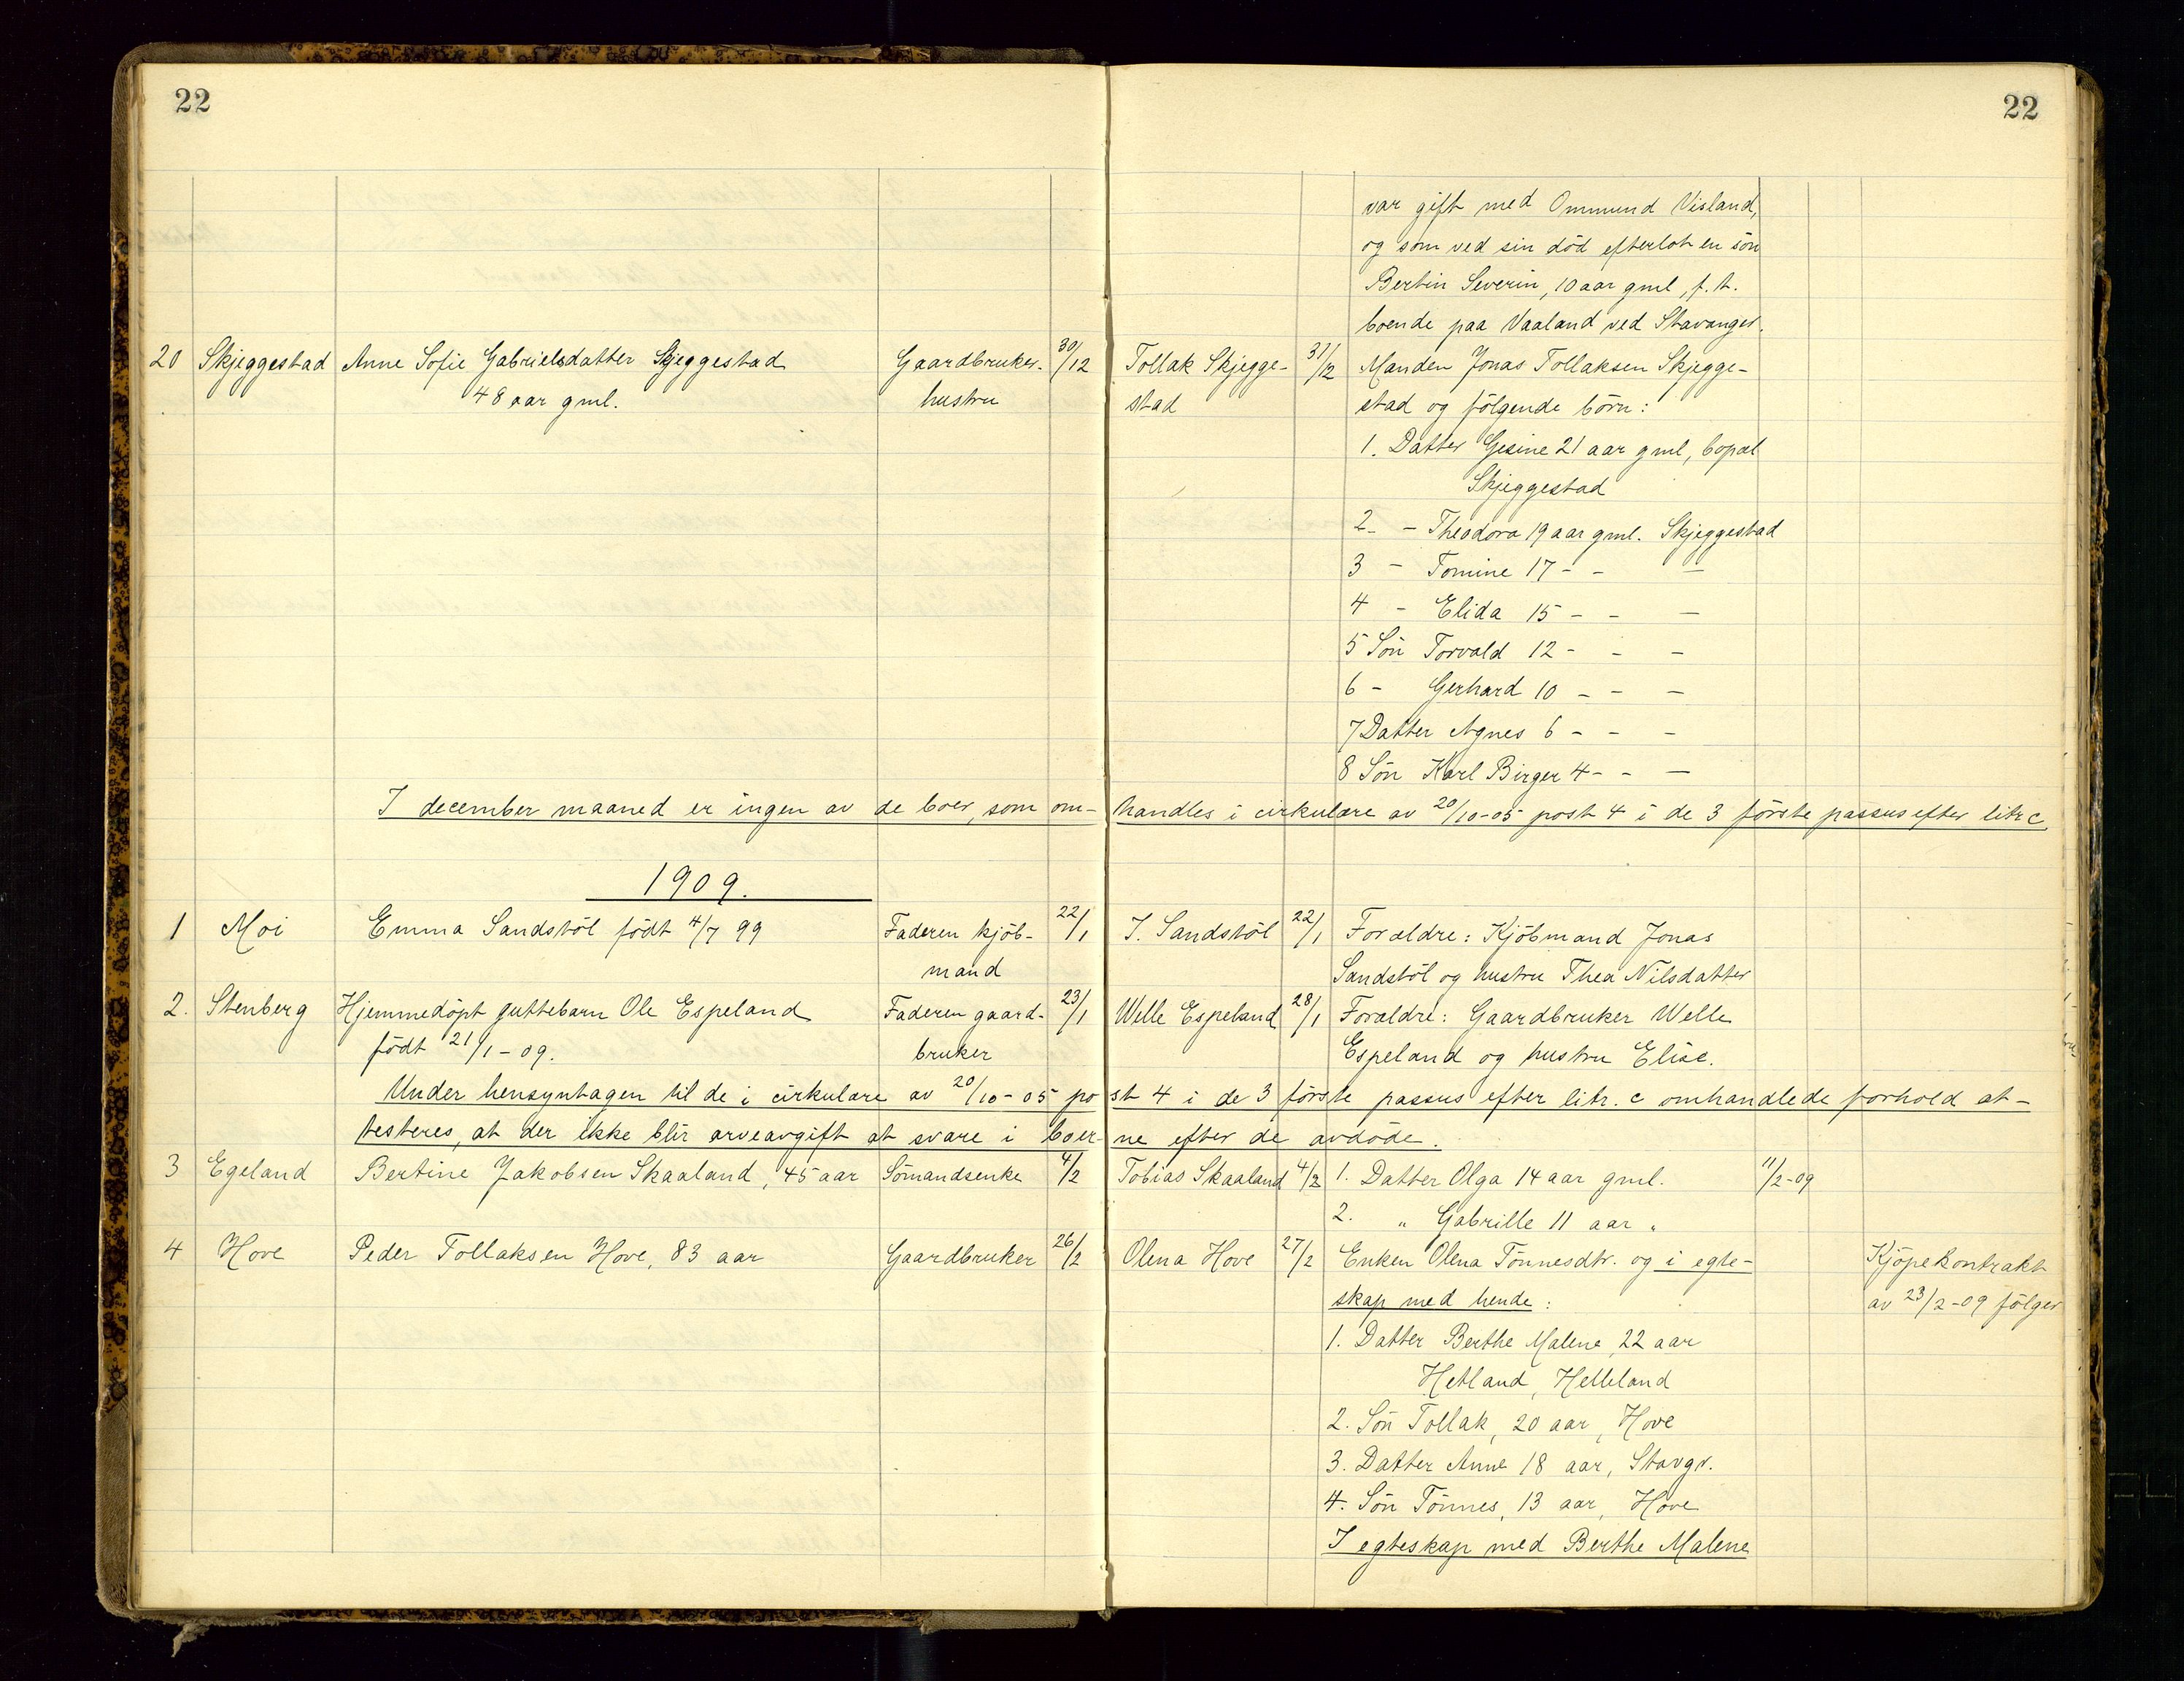 22
22
var gift med Ommund Visland,
og som ved sin död efterlot en sön
Bertin Severin, 10 aar gml, f. t.
boende paa Vaaland ved Stavanger.
20 Skjeggestad Anne Sofie Gabrielsdatter Skjeggestad Gaardbruker- 30/12 Tollak Skjegge- 31/12 Manden Jonas Tollaksen Skjegge-
48 aar gml. hustru stad stad og fölgende börn:
1. Datter Gesine 21 aar gml, bopæl
Skjeggestad
2 - - Theodora 19 aar gml. Skjeggestad
3 - Tomine 17 - - -
4 - Elida 15 - - -
5 Sön Torvald 12 - - -
6 - Gerhard 10 - - -
7 Datter Agnes 6 - - -
8 Sön Karl Birger 4 - - -
I december maaned er ingen av de boer, som om- handles i cirkulære av 20/10-05 post 4 i de 3 förste passus efter litr c
1909.
1 Moi Emma Sandstöl födt 4/7 99 Faderen kjöb- 22/1 J. Sandstöl 22/1 Forældre: Kjöbmand Jonas
mand Sandstöl og hustru Thea Nilsdatter
2. Stenberg Hjemmedöpt guttebarn Ole Espeland Faderen gaard- 23/1 Welle Espeland 28/1 Forældre: Gaardbruker Welle
födt 21/1-09. bruker Espeland og hustru Elise.
Under hensyntagen til de i cirkulære av 20/10-05 po st 4 i de 3 förste passus efter litr. c omhandlede forhold at-
testeres, at der ikke blir arveavgift at svare i boer- ne efter de avdöde.
3 Egeland Bertine Jakobsen Skaaland, 45 aar Sömandsenke 4/2 Tobias Skaaland 4/2 1. Datter Olga 14 aar gml. 11/2-09
2. " Gabrille 11 aar "
4 Hove Peder Tollaksen Hove, 83 aar Gaardbruker 26/2 Olena Hove 27/2 Enken Olena Tönnesdtr. og i egte- Kjöpekontrakt
skap med hende: av 23/2-09 fölger
1. Datter Berthe Malene, 22 aar
Hetland, Helleland
2. Sön Tollak, 20 aar, Hove
3. Datter Anne 18 aar, Stavgr.
4. Sön Tönnes, 13 aar, Hove
I egteskap med Berthe Malene